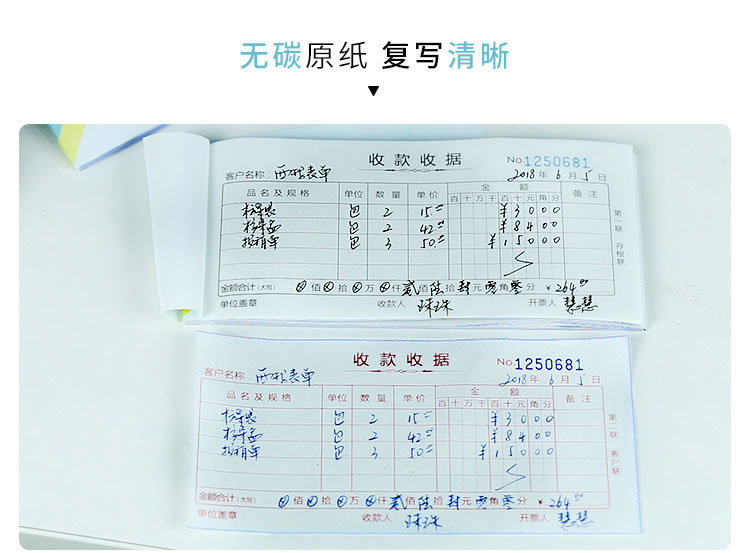 无碳原纸 复写清晰
收款收据 No.1250681
客户名称： 西玛表单 2018年 6月 5日
品名及规格 单位 数量 单价 金额 备注
百 十 万 千 百 十 元 角 分
包 2 15.00 ¥3000
包 2 42.00 ¥8400
装箱单 包 3 50.00 ¥15000
第一联 存根联
金额合计(大写) ⊗佰⊗拾⊗万⊗仟贰佰陆拾肆元零角零分 ¥264.00
单位盖章 收款人 珠珠 开票人 慧慧
收款收据 No.1250681
客户名称： 西玛表单 2018年 6月 5日
品名及规格 单位 数量 单价 金额 备注
百 十 万 千 百 十 元 角 分
包 2 15.00 ¥3000
包 2 42.00 ¥8400
装箱单 包 3 50.00 ¥15000
第二联 客户联
金额合计(大写) ⊗佰⊗拾⊗万⊗仟贰佰陆拾肆元零角零分 ¥264.00
单位盖章 收款人 珠珠 开票人 慧慧